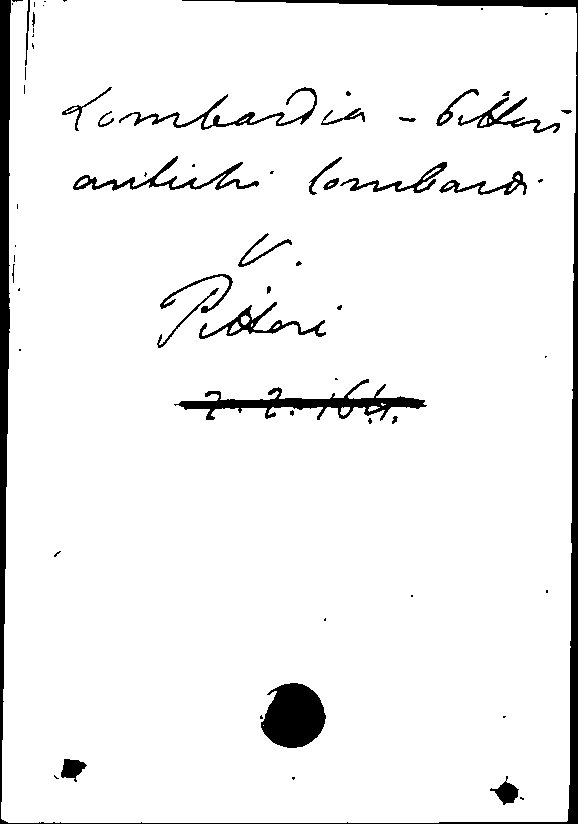 Lombardia - Pittori
antichi lombardi
V.
Pittori
2. 2. 164.